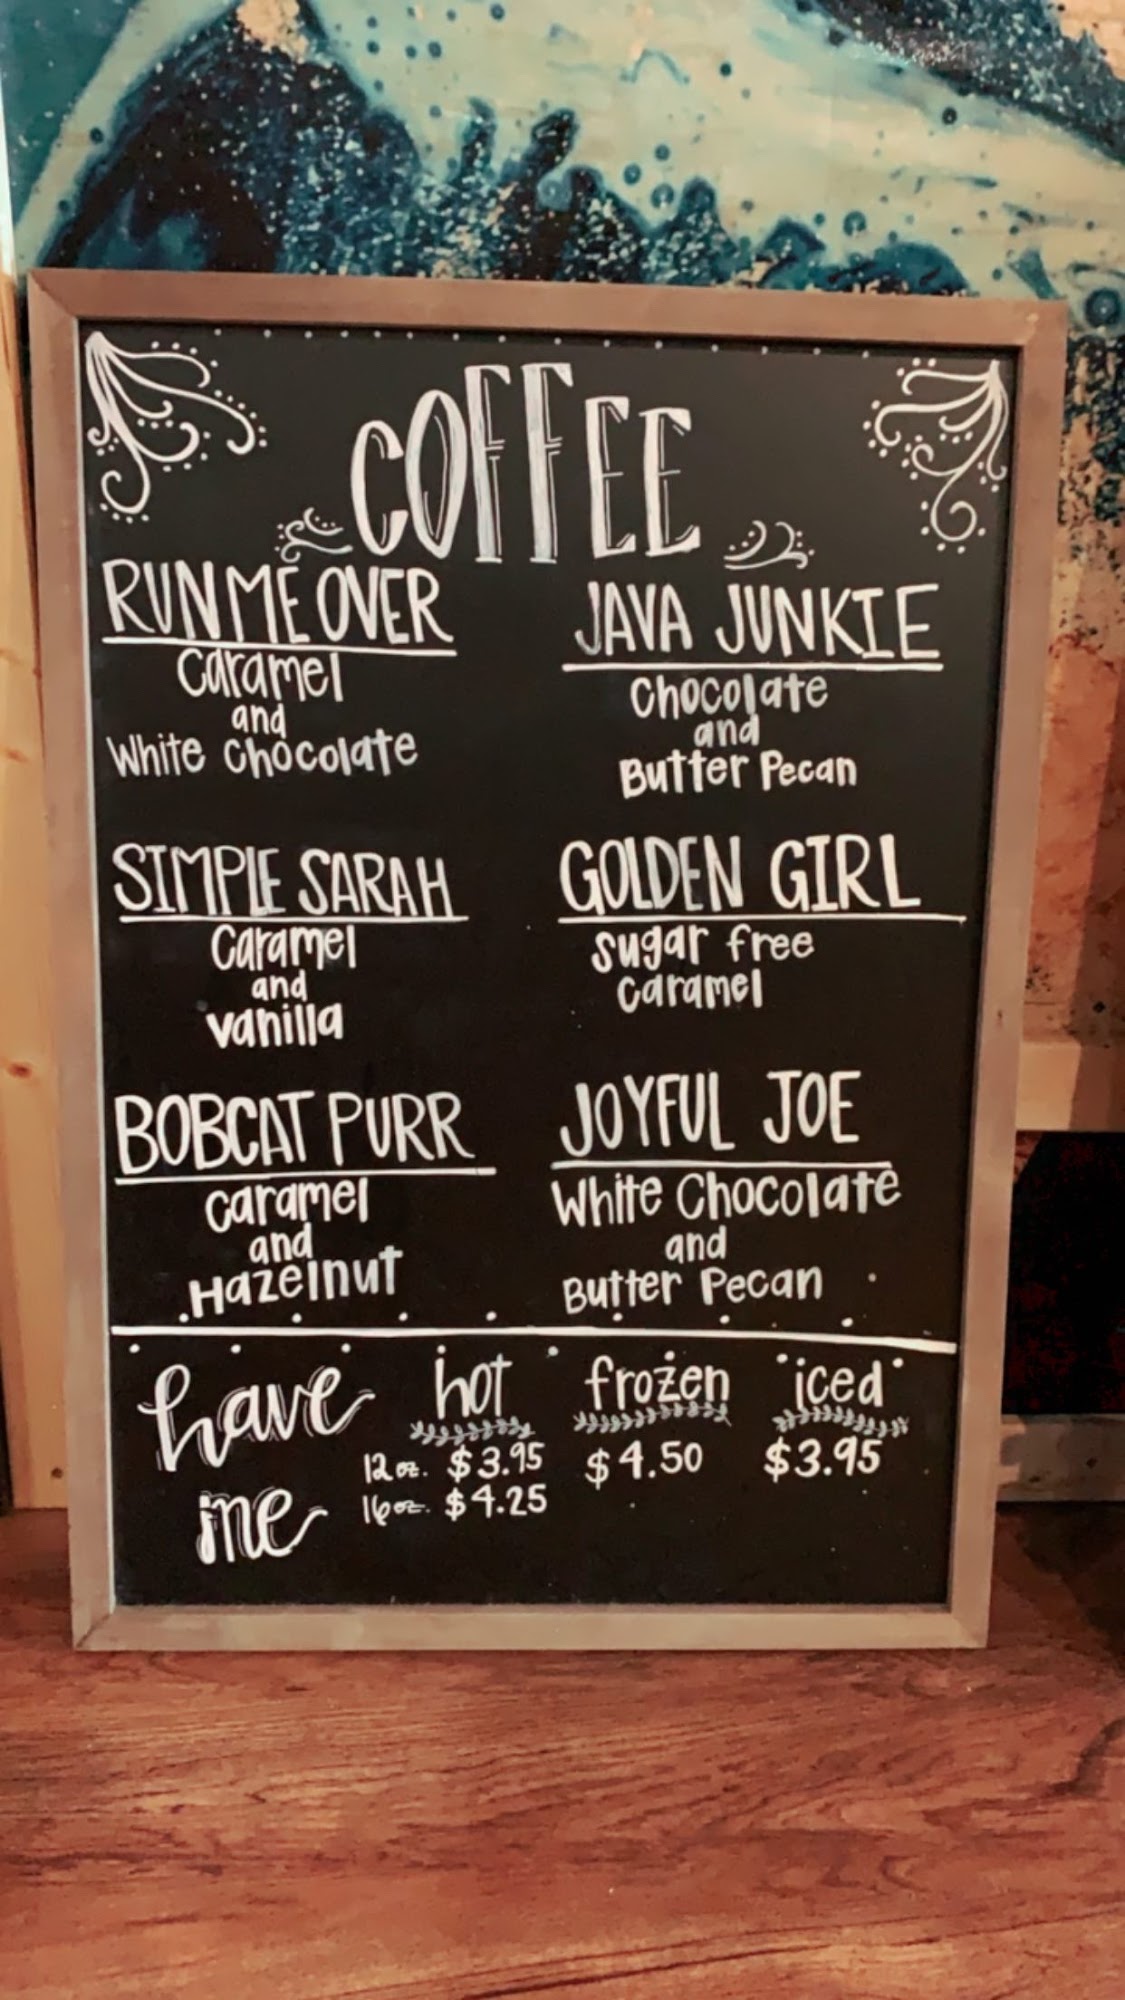 COFFEE
RUN ME OVER
Caramel
and
White Chocolate
JAVA JUNKIE
Chocolate
and
Butter Pecan
SIMPLE SARAH
Caramel
and
Vanilla
GOLDEN GIRL
Sugar free
Caramel
BOBCAT PURR
Caramel
and
Hazelnut
JOYFUL JOE
White Chocolate
and
Butter Pecan
have
me
hot
12 oz. $3.95
16 oz. $4.25
frozen
$4.50
iced
$3.95